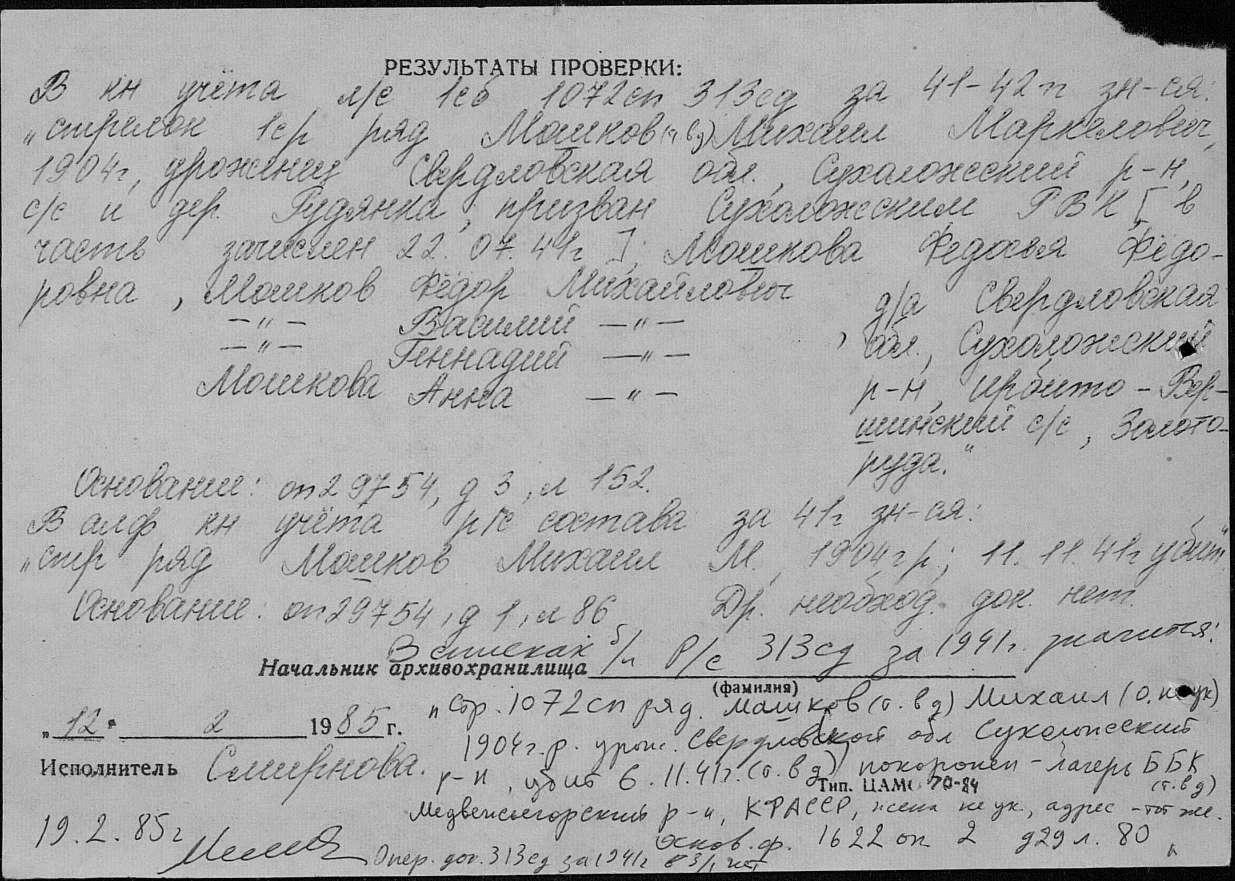 РЕЗУЛЬТАТЫ ПРОВЕРКИ:
В кн учёта л/с 1сб 1072сп 313сд за 41-42гг зн-ся:
„стрелок 1ср ряд Мошков (т. в д) Михаил Маркелович,
1904г, уроженец Свердловская обл., Сухоложский р-н,
с/с и дер. Рудянка, призван Сухоложским РВК [в
часть зачислен 22.07.41г]; Мошкова Федосья Фёдо-
ровна, Мошков Фёдор Михайлович
—„— Василий —„—
—„— Геннадий —„—
Мошкова Анна —„—
д/а Свердловская
обл., Сухоложский
р-н, Ирбито-Вер-
шинский с/с, Золото-
руда."
Основание: оп 29754, д 3, л 152.
В алф кн учёта р/с состава за 41г зн-ся:
„стр ряд Мошков Михаил М., 1904г/р; 11.11.41г убит".
Основание: оп 29754, д 1, л 86 Др. необход. док. нет.
В списках б/п р/с 313сд за 1941г. значится:
Начальник архивохранилища
(фамилия)
„стр. 1072сп ряд. Машков (т. в д) Михаил (о. не ук)
„12" 2 1985 г.
1904г.р. урож. Свердловской обл Сухоложский
Исполнитель Смирнова.
р-н, убит 6.11.41г. (т. в д) похоронен - лагерь ББК
(т. в д)
Тип. ЦАМО 70-84
Медвежьегорский р-н, КФАССР, жена не ук, адрес - тот же.
19.2.85г
Основ. ф. 1622 оп 2 д 29 л. 80
Опер. док. 313сд за 1941г